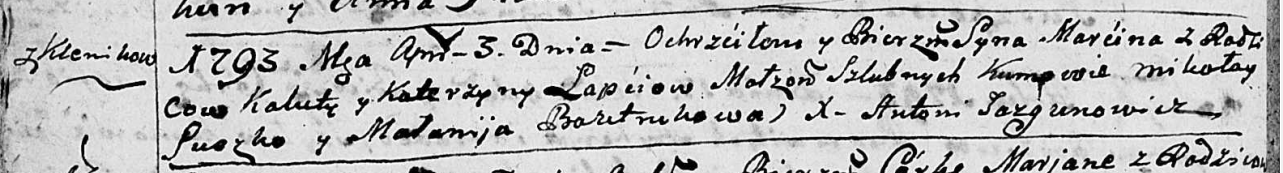 z Klenikow
1793 Mca Apr– 3. Dnia = Ochrzciłem y Bierzm Syna Marcina z Rodzi
cow Kaluty y Katerzyny Łapciow Małzon Szlubnych Kumowie mikołay
Puszko y Małanija X– Antoni Jazgunowicz
Bierzm Córkę Marjane z Rodzicow